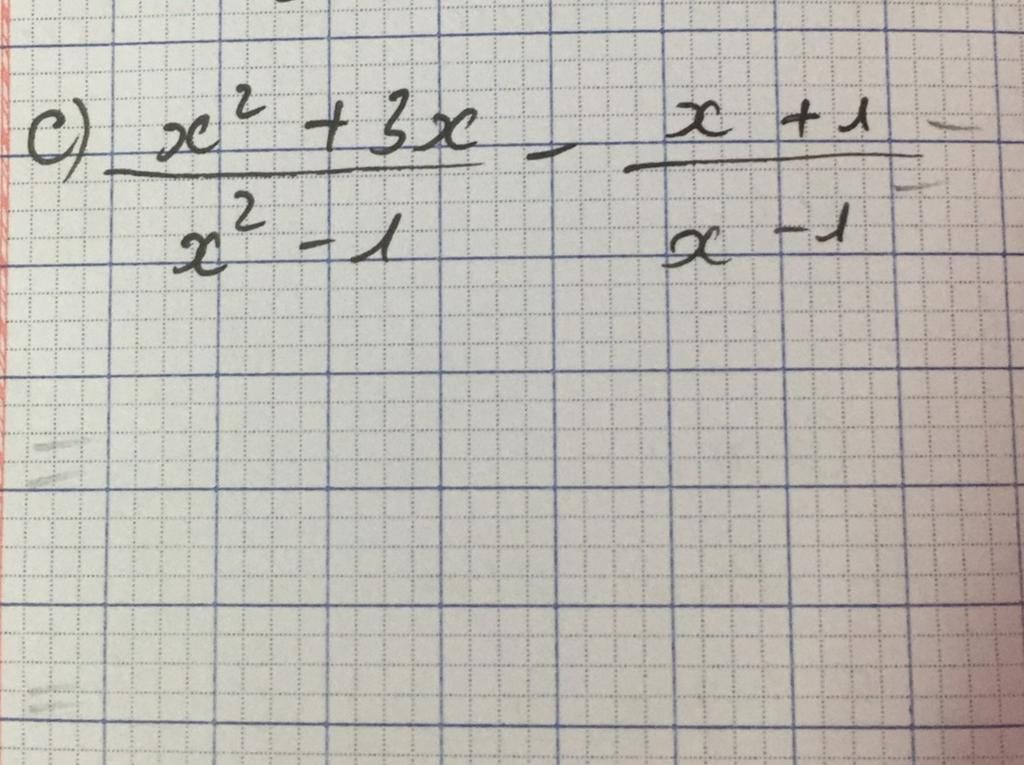 C) x² + 3x / x² - 1 - x + 1 / x - 1 =